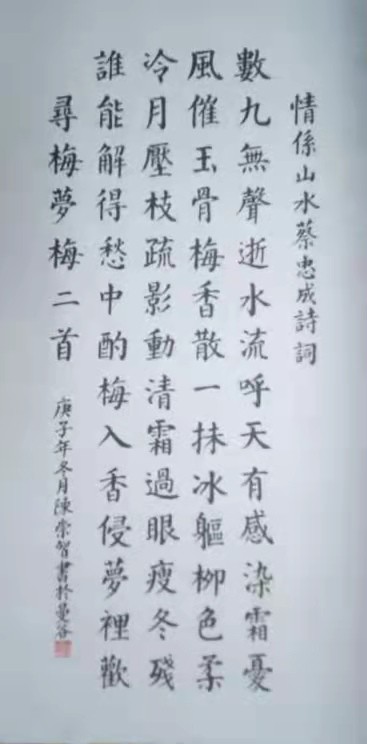 情係山水蔡忠成詩詞
數九無聲逝水流呼天有感染霜憂
風催玉骨梅香散一抹冰軀柳色柔
冷月壓枝疏影動清霜過眼瘦冬殘
誰能解得愁中酌梅入香侵夢裡歡
尋梅夢梅二首
庚子年冬月陳崇智書於曼谷